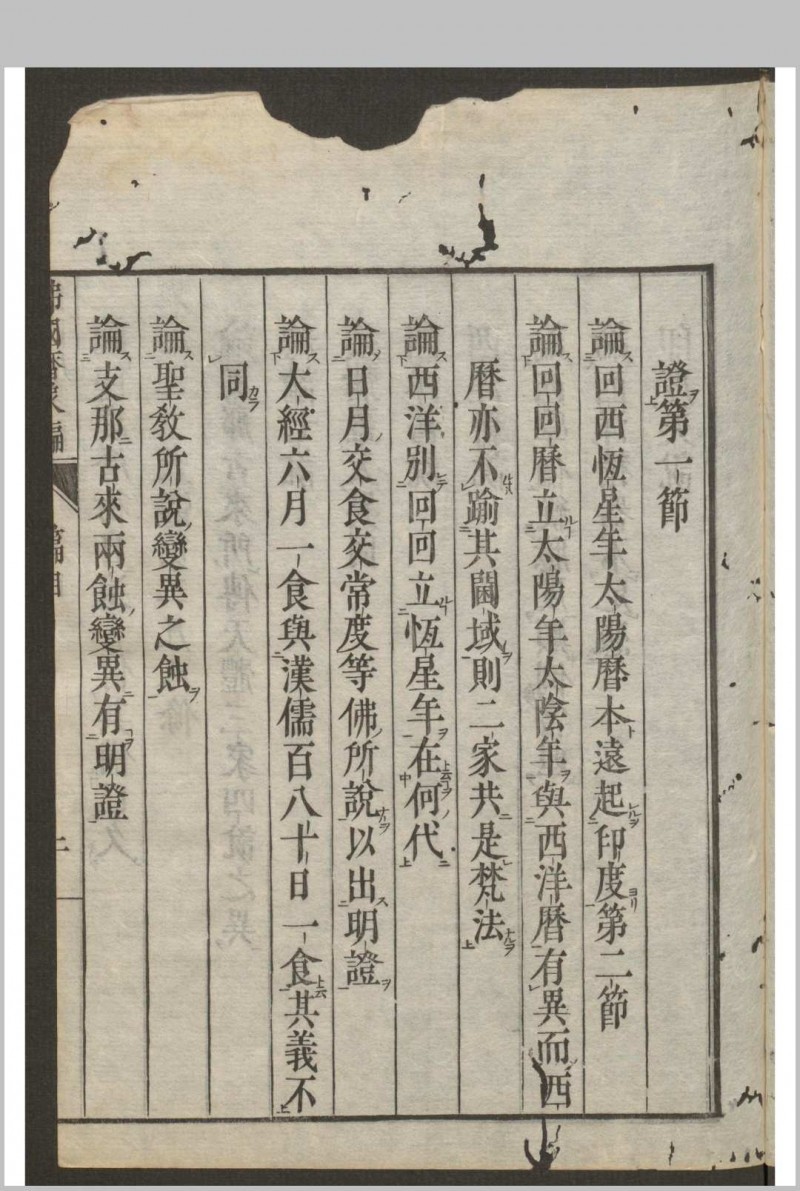 證第一節
論回西恆星年太陽曆本遠起印度第二節
論回回曆立太陽年太陰年與西洋曆有異而西
曆亦不踰其閫域則二家共是梵法
論西洋別回回立恆星年在何代
論日月交食交常度等佛所說以出明證
論大經六月一食與漢儒百八十日一食其義不
同
論聖教所說變異之蝕
論支那古來兩蝕變異有明證